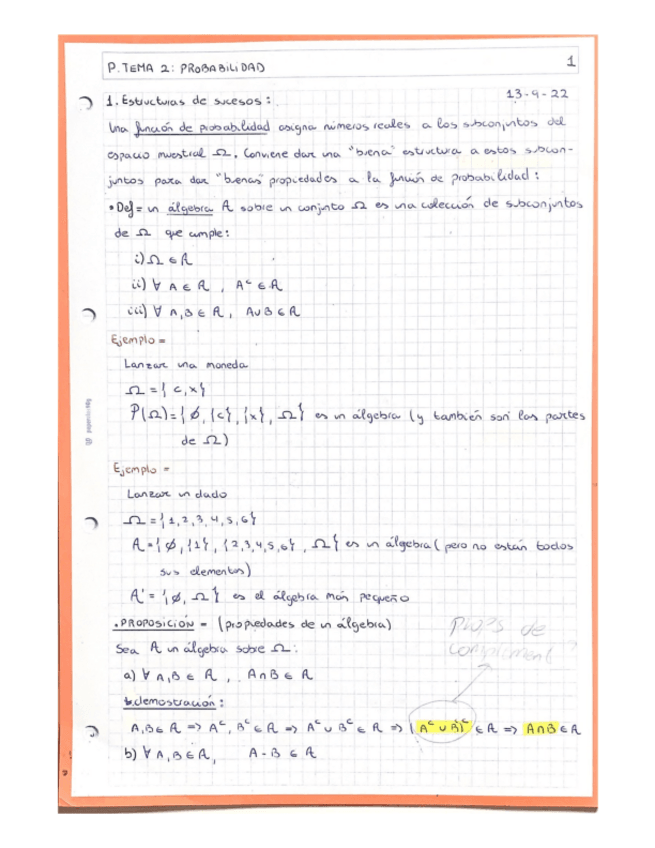 P. TEMA 2: PROBABILIDAD
1
13-9-22
1. Estructuras de sucesos:
Una función de probabilidad asigna números reales a los subconjuntos del
espacio muestral Ω. Conviene dar una "buena" estructura a estos subcon-
juntos para dar "buenas" propiedades a la función de probabilidad:
• Def = un álgebra A sobre un conjunto Ω es una colección de subconjuntos
de Ω que cumple:
i) Ω ∈ A
ii) ∀ A ∈ A, Aᶜ ∈ A
iii) ∀ A,B ∈ A, A∪B ∈ A
Ejemplo =
Lanzar una moneda
Ω = { c, x }
P(Ω) = { ∅, {c}, {x}, Ω } es un álgebra (y también son las partes
de Ω)
Ejemplo =
Lanzar un dado
Ω = {1,2,3,4,5,6}
A = { ∅, {1}, {2,3,4,5,6}, Ω } es un álgebra (pero no están todos
sus elementos)
A' = { ∅, Ω } es el álgebra más pequeño
• PROPOSICIÓN = (propiedades de un álgebra)
Props de
Sea A un álgebra sobre Ω:
a) ∀ A,B ∈ A, A∩B ∈ A
demostración:
A,B ∈ A => Aᶜ, Bᶜ ∈ A => Aᶜ ∪ Bᶜ ∈ A => (Aᶜ ∪ Bᶜ)ᶜ ∈ A => A∩B ∈ A
b) ∀ A,B ∈ A, A - B ∈ A